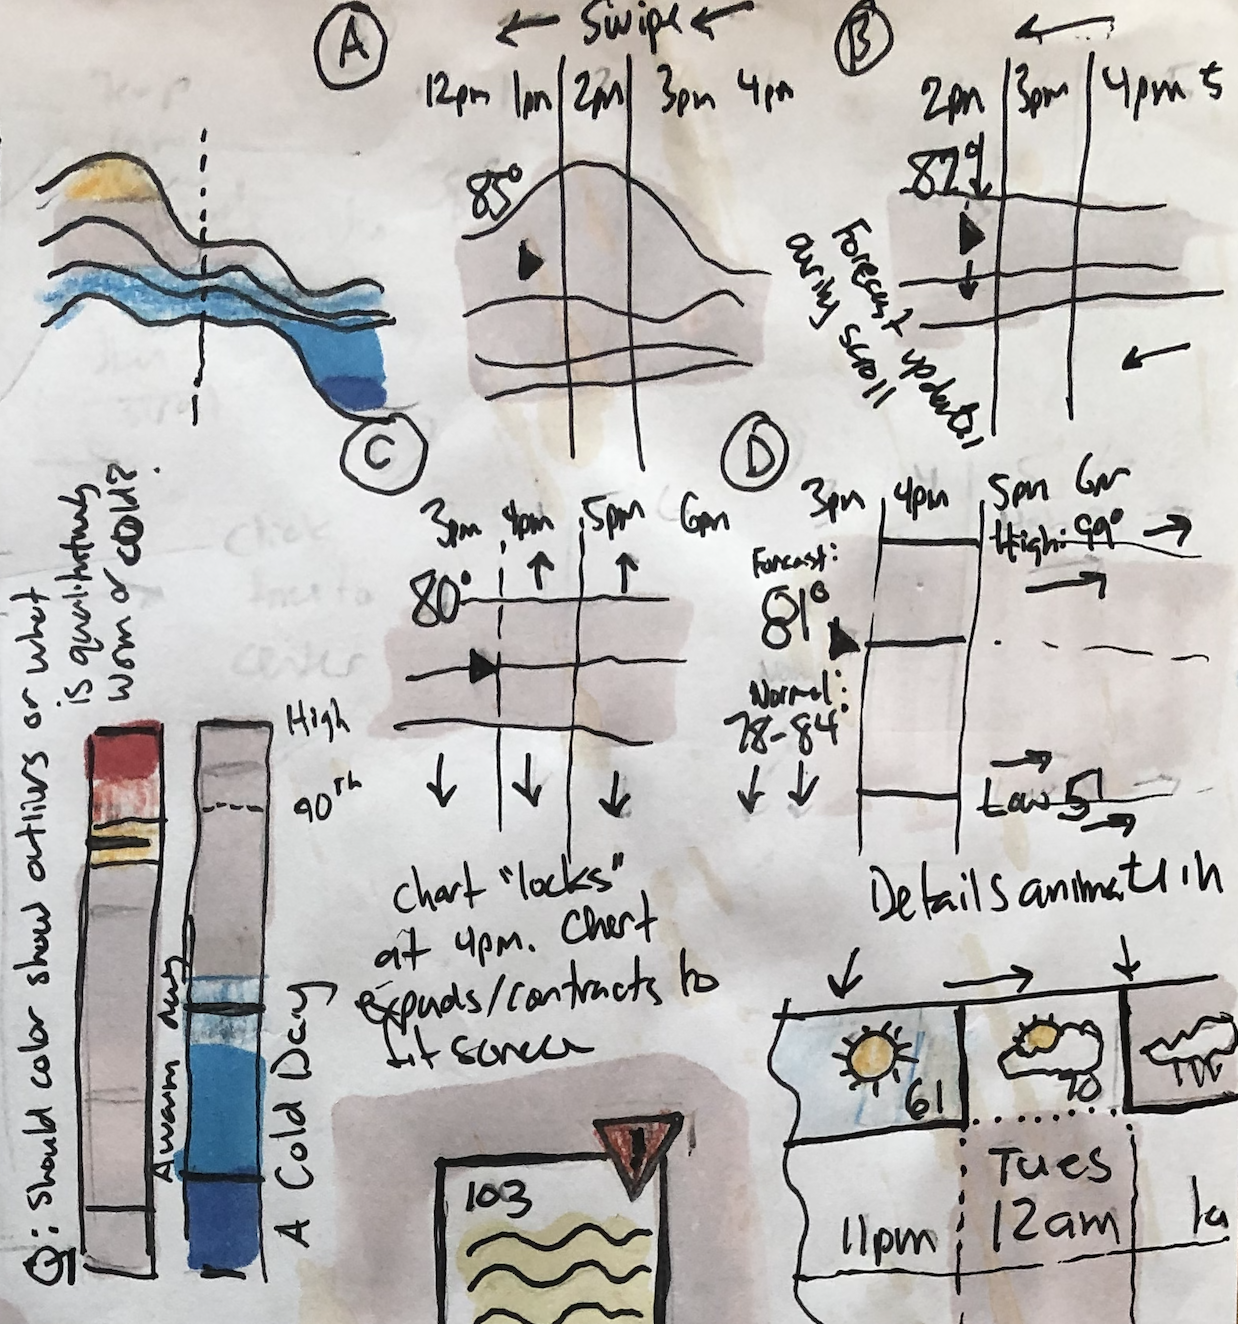 A
← Swipe ←
12pm 1pm 2pm 3pm 4pm
85°
B
2pm 3pm 4pm 5
82°
Forecast updates
during scroll
C
3pm 4pm 5pm 6pm
80°
chart "locks"
at 4pm. Chart
expands/contracts to
fit screen
D
3pm 4pm 5pm 6pm
High: 99°
Forecast:
81°
Normal:
78-84°
Low 51
Details animate in
Q: should color show outliers or what
is qualitatively
warm or cold?
High
90th
A warm day
A Cold Day
103
!
61
70
11pm
Tues
12am
1a